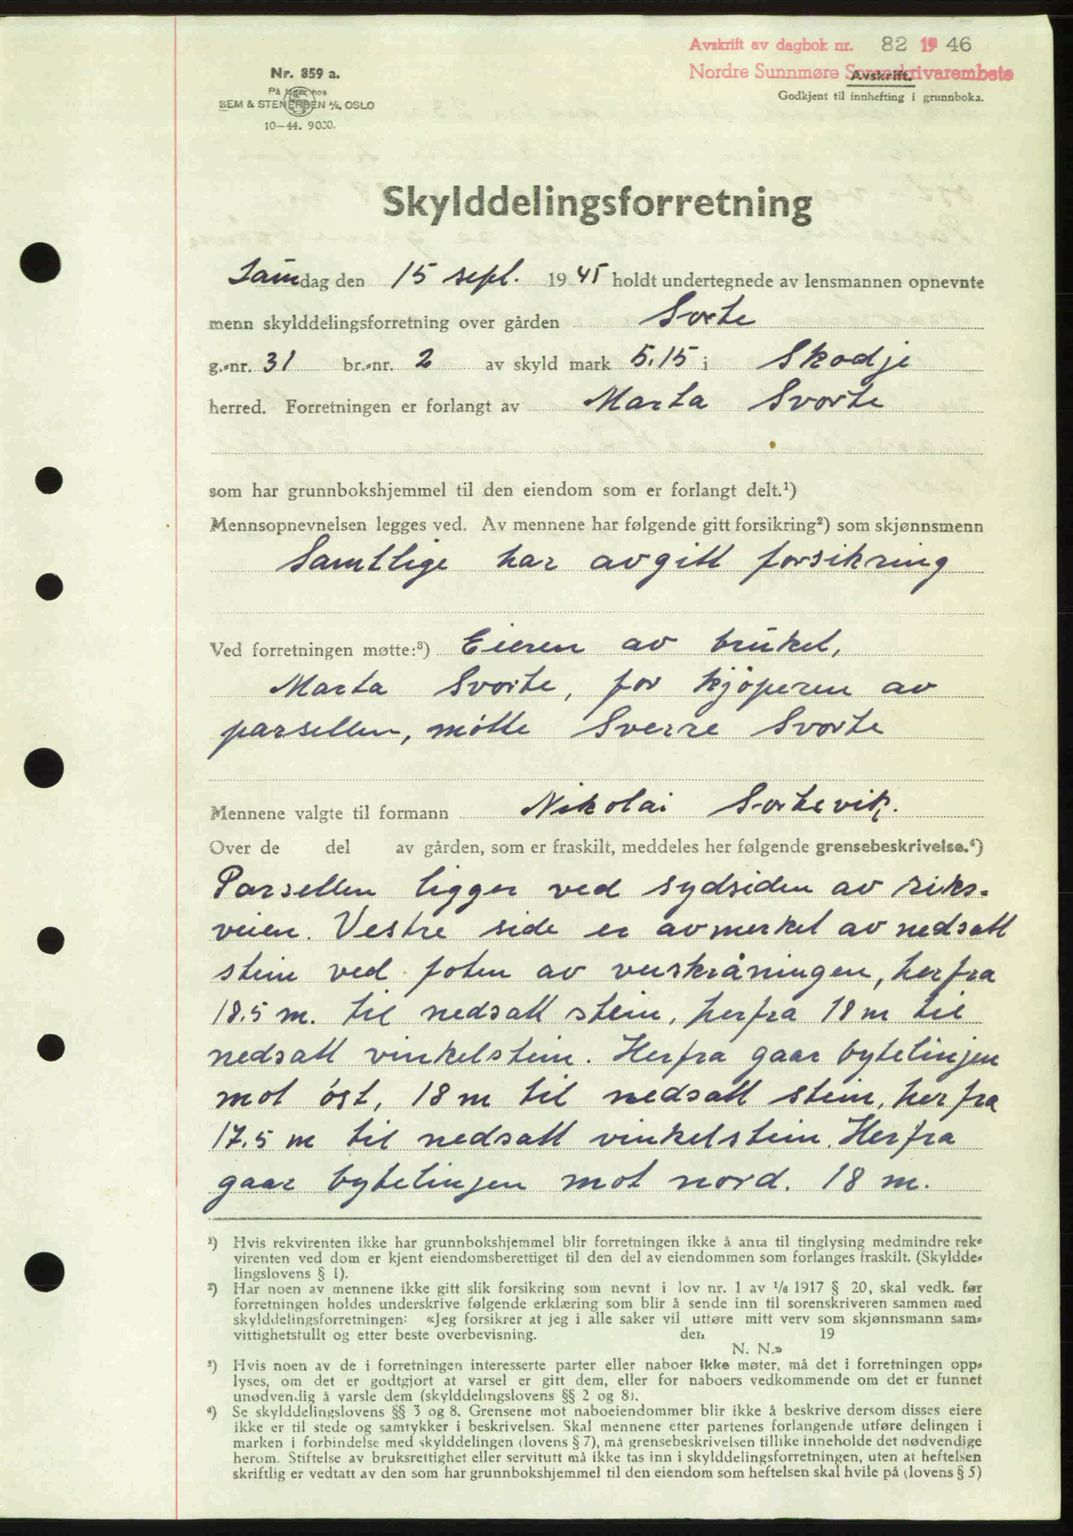 Avskrift av dagbok nr. 82 1946
Nordre Sunnmøre Sorenskrivarembete
Avskrift.
Godkjent til innhefting i grunnboka.
Nr. 859 a.
På lager hos
SEM & STENERSEN A/S, OSLO
10—44. 9000.
Skylddelingsforretning
Laurdag den 15 sept. 1945 holdt undertegnede av lensmannen opnevnte
menn skylddelingsforretning over gården Svorte
g.-nr. 31 br.-nr. 2 av skyld mark 5.15 i Skodje
herred. Forretningen er forlangt av Marta Svorte
som har grunnbokshjemmel til den eiendom som er forlangt delt.¹)
Mennsopnevnelsen legges ved. Av mennene har følgende gitt forsikring²) som skjønnsmenn
Samtlige har avgitt forsikring
Ved forretningen møtte:³) Eieren av bruket,
Marta Svorte, for kjøperen av
parsellen, møtte Sverre Svorte
Mennene valgte til formann Nikolai Sortevik.
Over de del av gården, som er fraskilt, meddeles her følgende grensebeskrivelse.⁴)
Parsellen ligger ved sydsiden av riks-
veien. Vestre side er avmerket av nedsatt
stein ved foten av veiskråningen, herfra
18.5 m. til nedsatt stein, herfra 18 m til
nedsatt vinkelstein. Herfra gaar bytelinjen
mot øst, 18 m til nedsatt stein, herfra
17.5 m til nedsatt vinkelstein. Herfra
gaar bytelinjen mot nord. 18 m.
¹) Hvis rekvirenten ikke har grunnbokshjemmel blir forretningen ikke å anta til tinglysing medmindre rek-
virenten ved dom er kjent eiendomsberettiget til den del av eiendommen som forlanges fraskilt. (Skyldde-
lingslovens § 1).
²) Har noen av mennene ikke gitt slik forsikring som nevnt i lov nr. 1 av 1/6 1917 § 20, skal vedk. før
forretningen holdes underskrive følgende erklæring som blir å sende inn til sorenskriveren sammen med
skylddelingsforretningen: «Jeg forsikrer at jeg i alle saker vil utføre mitt verv som skjønnsmann sam-
vittighetsfullt og etter beste overbevisning. den 19
N. N.»
³) Hvis noen av de i forretningen interesserte parter eller naboer ikke møter, må det i forretningen opp-
lyses, om det er godtgjort at varsel er gitt dem, eller for naboers vedkommende om det er funnet
unødvendig å varsle dem (skylddelingslovens §§ 2 og 8).
⁴) Se skylddelingslovens §§ 3 og 8. Grensene mot naboeiendommer blir ikke å beskrive dersom disses eiere
ikke er til stede og samtykker i beskrivelsen. Skal mennene etter partenes forlangende utføre delingen i
marken i forbindelse med skylddelingen (lovens § 7), må grensebeskrivelsen tillike inneholde det nødvendige
herom. Stiftelse av bruksrettighet eller servitutt må ikke tas inn i skylddelingsforretningen, uten at heftelsen
skriftlig er vedtatt av den som har grunnbokshjemmel til den eiendom som heftelsen skal hvile på (lovens § 5)